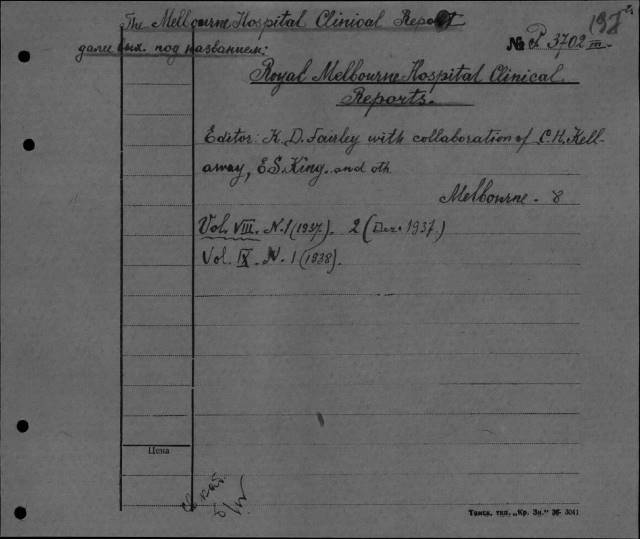 The Melbourne Hospital Clinical Report
198
далее вых. под названием:
№ P 3702 III.
Royal Melbourne Hospital Clinical
Reports.
Editor: K. D. Fairley with collaboration of C. H. Kell-
away, E S. King. and oth
Melbourne - 8
Vol. VIII. N. 1 (1937). 2 (Dec. 1937.)
Vol. IX. N. 1 (1938).
Цена
Томск, тип. „Кр. Зн." 36- 3041